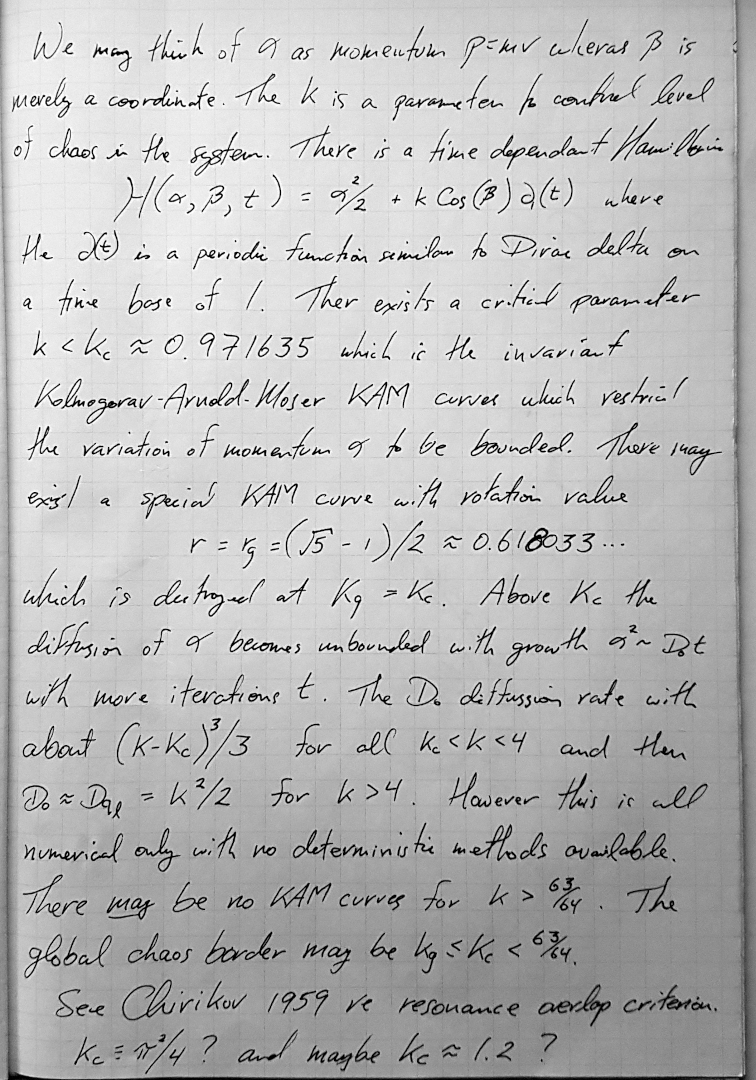 We may think of α as momentum p=mv wheras β is
merely a coordinate. The K is a parameter to control level
of chaos in the system. There is a time dependant Hamiltonian
H(α, β, t) = α²/2 + k Cos(β) ∂(t) where
the ∂(t) is a periodic function similar to Dirac delta on
a time base of 1. Ther exists a critical parameter
k < Kc ≈ 0.971635 which is the invariant
Kolmogorav-Arnold-Moser KAM curves which restrict
the variation of momentum α to be bounded. There may
exist a special KAM curve with rotation value
r = rg = (√5 - 1)/2 ≈ 0.618033...
which is destroyed at Kg = Kc. Above Kc the
diffusion of α becomes unbounded with growth α² ~ D₀t
with more iterations t. The D₀ diffussion rate with
about (K-Kc)³/3 for all Kc < K < 4 and then
D₀ ≈ Dql = K²/2 for k > 4. However this is all
numerical only with no deterministic methods available.
There may be no KAM curves for k > 63/64. The
global chaos border may be Kg ≤ Kc < 63/64.
See Chirikov 1959 re resonance overlap criterion.
Kc ≡ π²/4 ? and maybe Kc ≈ 1.2 ?